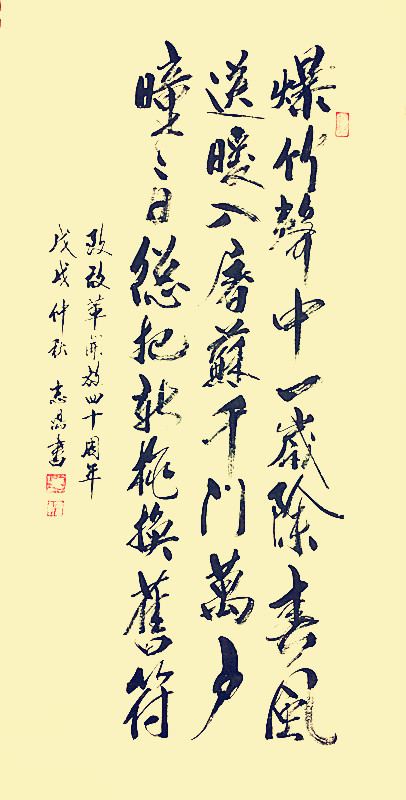 爆竹聲中一歲除春風
送暖入屠蘇千門萬戶
曈々日總把新桃換舊符
致改革開放四十周年
戊戌仲秋 志昌書